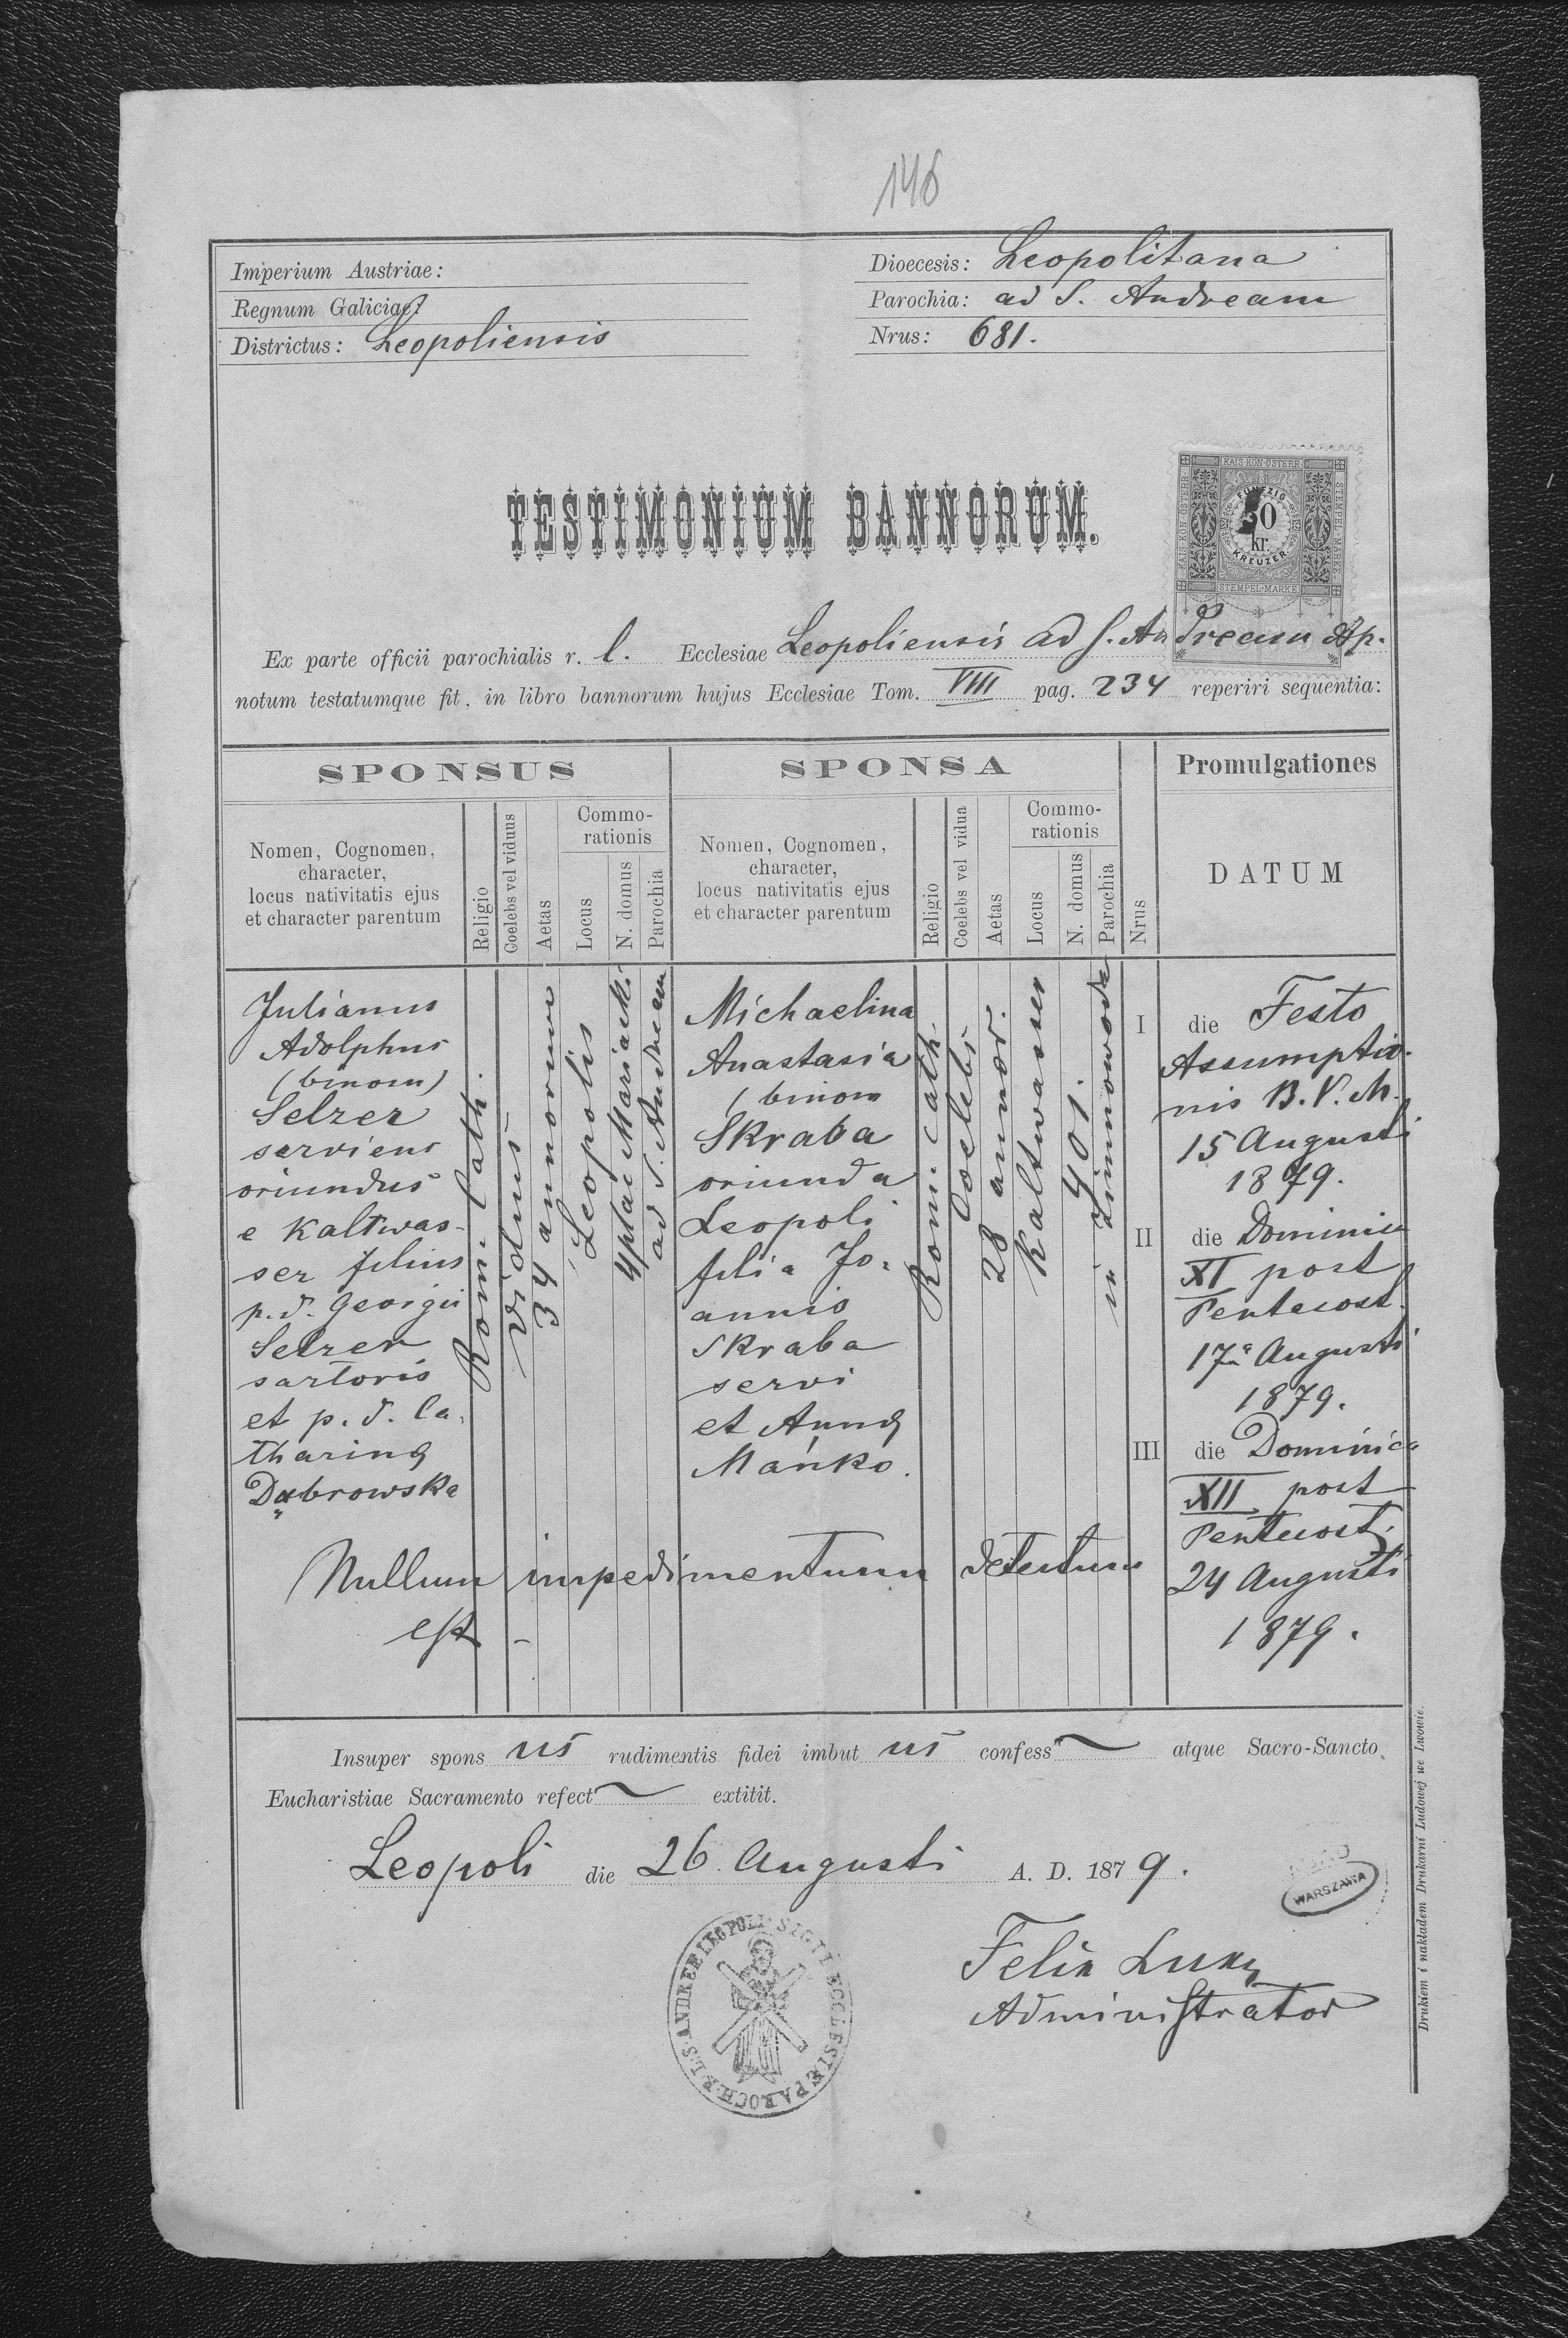 146
Imperium Austriae:
Regnum Galiciae:
Districtus: Leopoliensis
Dioecesis: Leopolitana
Parochia: ad S. Andream
Nrus: 681.
TESTIMONIUM BANNORUM.
KAIS. KÖN. ÖSTERR.
STEMPEL-MARKE
FÜNFZIG
50
kr.
KREUZER
STEMPEL-MARKE
Ex parte officii parochialis r. l. Ecclesiae Leopoliensis ad S. Andream Ap.
notum testatumque fit, in libro bannorum hujus Ecclesiae Tom. VIII pag. 234 reperiri sequentia:
SPONSUS
SPONSA
Promulgationes
Nomen, Cognomen,
character,
locus nativitatis ejus
et character parentum
Religio
Coelebs vel viduus
Aetas
Commo-
rationis
Locus
N. domus
Parochia
Nomen, Cognomen,
character,
locus nativitatis ejus
et character parentum
Religio
Coelebs vel vidua
Aetas
Commo-
rationis
Locus
N. domus
Parochia
Nrus
DATUM
Julianus
Adolphus
(binom)
Selzer
serviens
oriundus
e Kaltwas-
ser filius
p. d. Georgii
Selzer
sartoris
et p. d. Ca-
tharina
Dąbrowska
Rom. Cath.
Viduus
34 annorum
Leopolis
4 plac Maryacki
ad S. Andream
Michaelina
Anastasia
(binom
Skraba
oriunda
Leopoli
filia Jo-
annis
Skraba
servi
et Anna
Mańko.
Rom. cath.
Coelebs
28 annor.
Kaltwasser
401.
in Zimnowoda
I die Festo
Assumptio-
nis B. V. M.
15 Augusti
1879.
II die Dominica
XI post
Pentecost.
17a Augusti
1879.
III die Dominica
XII post
Pentecost.
24 Augusti
1879.
Nullum impedimentum detectum
est -
Insuper spons us rudimentis fidei imbut us confess atque Sacro-Sancto
Eucharistiae Sacramento refect extitit.
Leopoli die 26 Augusti A. D. 1879.
WARSZAWA
Felix
Administrator
SIGIL. ECCLESIÆ PAROCH. R. L. S. ANDREE LEOPOLI
Drukiem i nakładem Drukarni Ludowej we Lwowie.